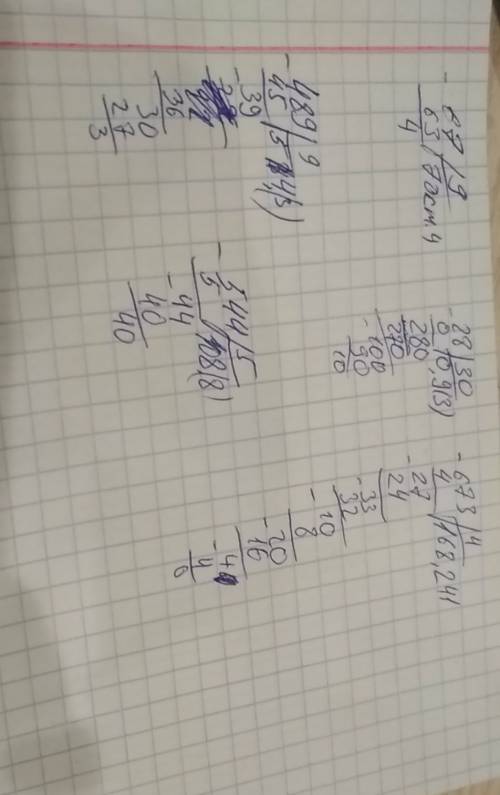 - 67 | 9
63 | 7 ост. 4
4
- 28 | 30
0 | 0,9(3)
280
270
- 100
90
10
- 673 | 4
4 | 168,241
- 27
24
- 33
32
- 10
8
- 20
16
- 4
4
0
- 489 | 9
45 | 54,(3)
- 39
36
30
27
3
- 544 | 5
5 | 108,(8)
- 44
40
40